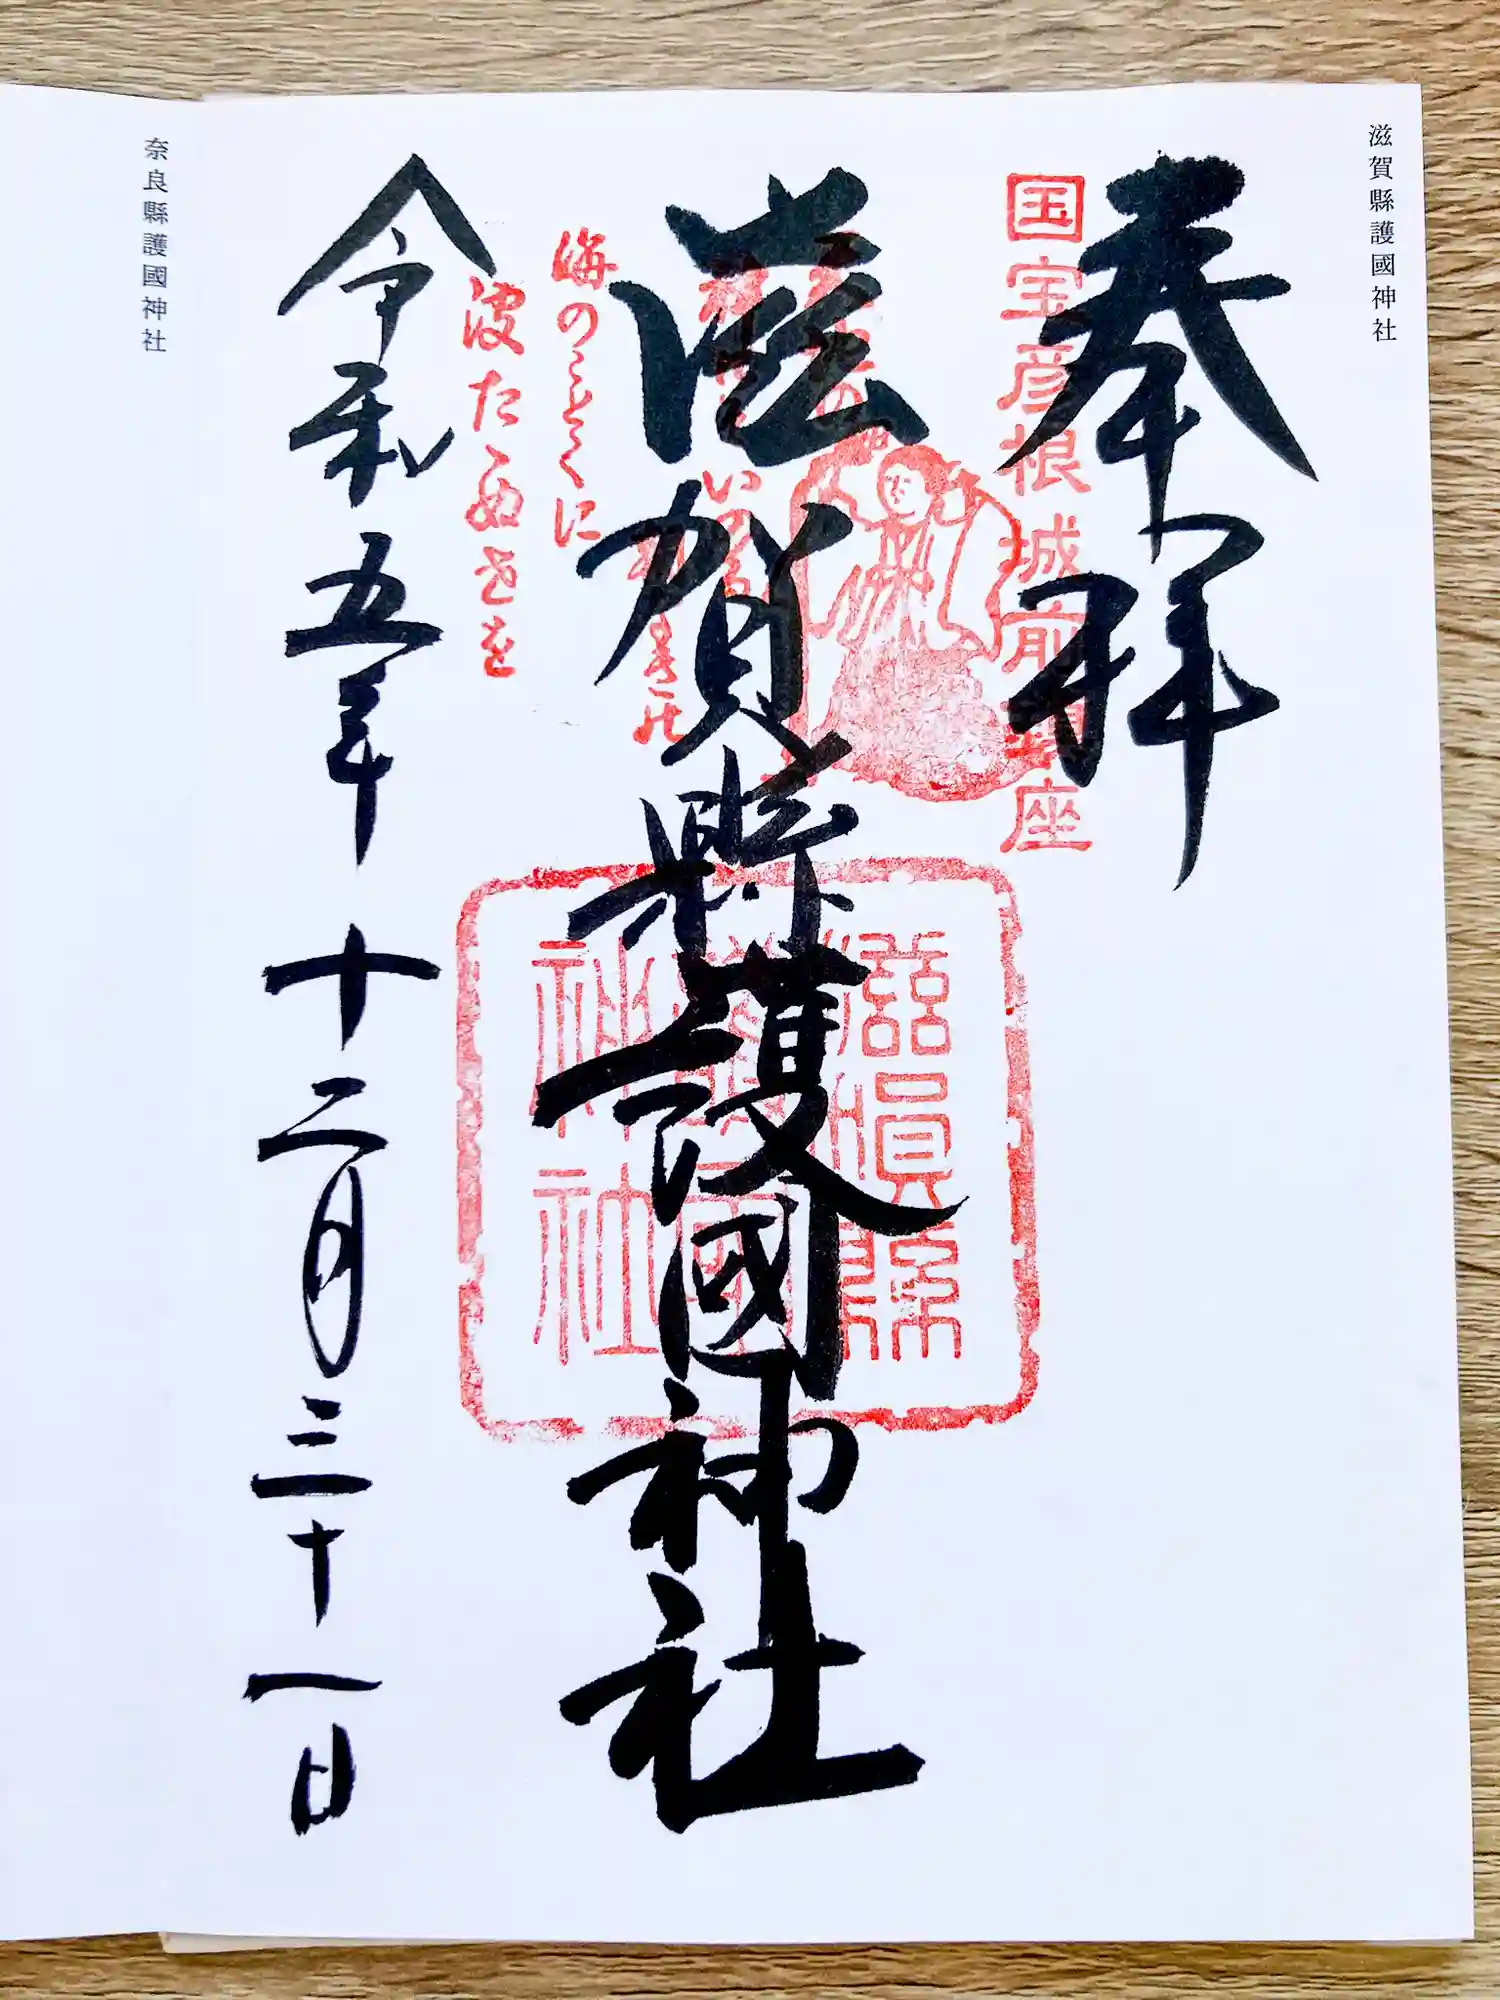 滋賀縣護國神社
奉拝
国宝彦根城前鎮座
滋賀縣護國神社
滋賀縣護國神社
海のことくに
波たぬさを
令和五年十二月三十一日
奈良縣護國神社